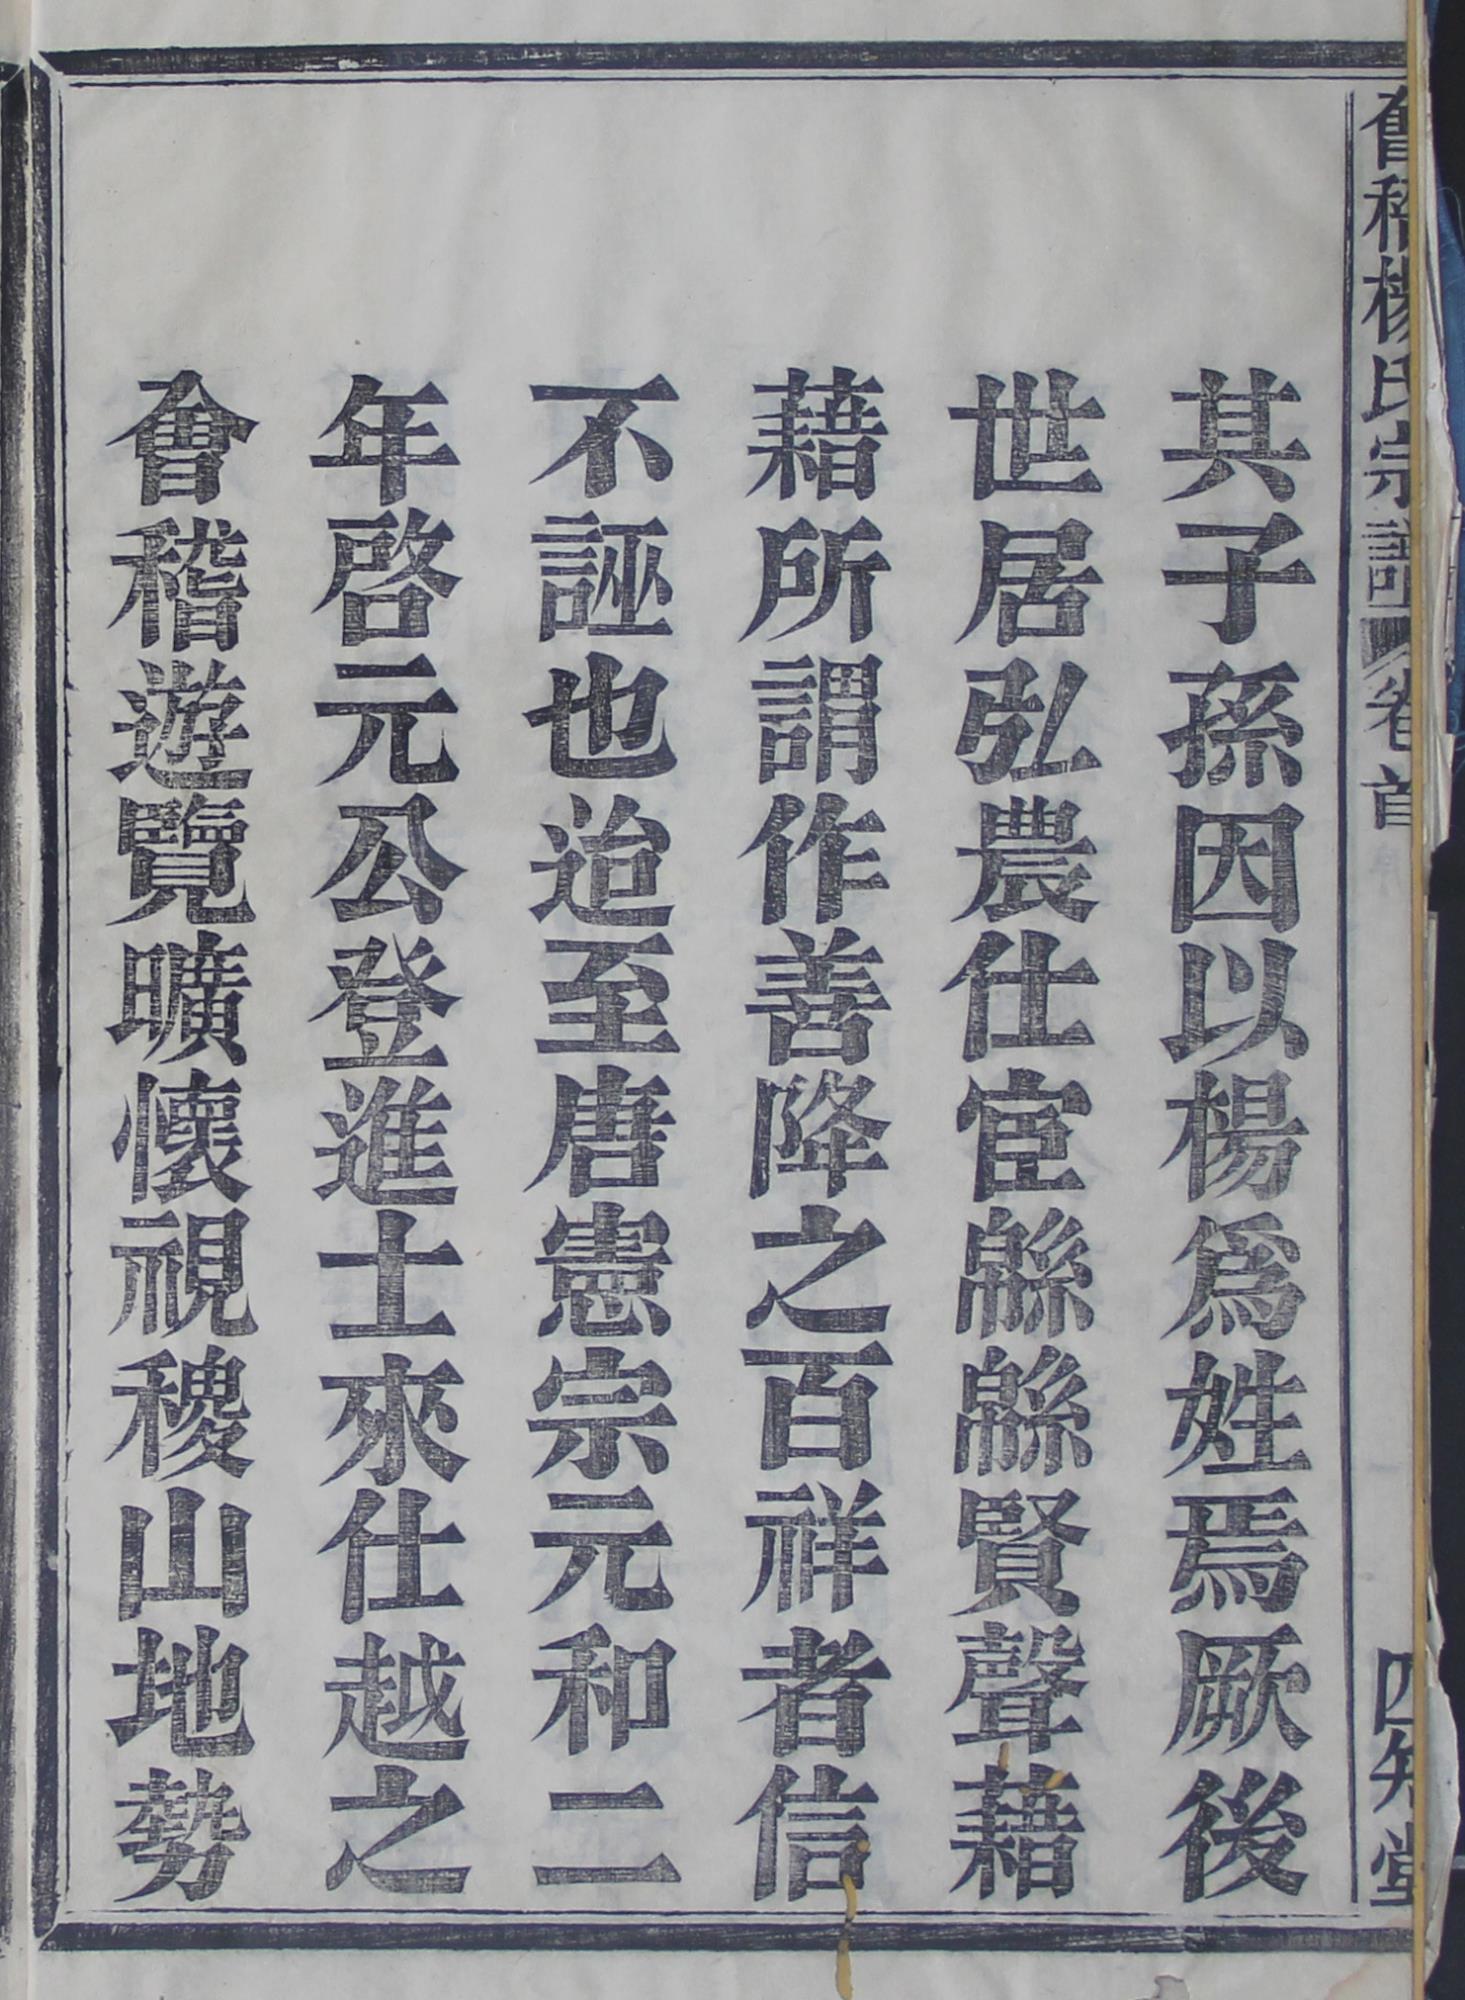 會稽楊氏宗譜 卷首 四知堂
其子孫因以楊爲姓焉厥後
世居弘農仕宦緜緜賢聲藉
藉所謂作善降之百祥者信
不誣也迨至唐憲宗元和二
年啓元公登進士來仕越之
會稽遊覽曠懷視稷山地勢